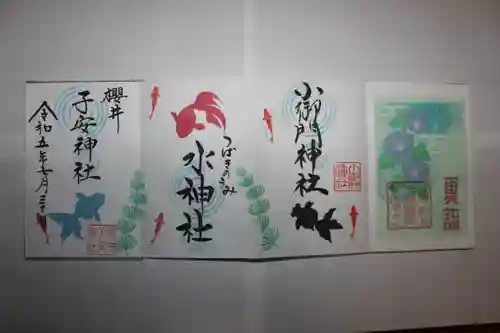 櫻井
子安神社
令和五年七月三十
つばきのきみ
水神社
小御門神社
夏詣